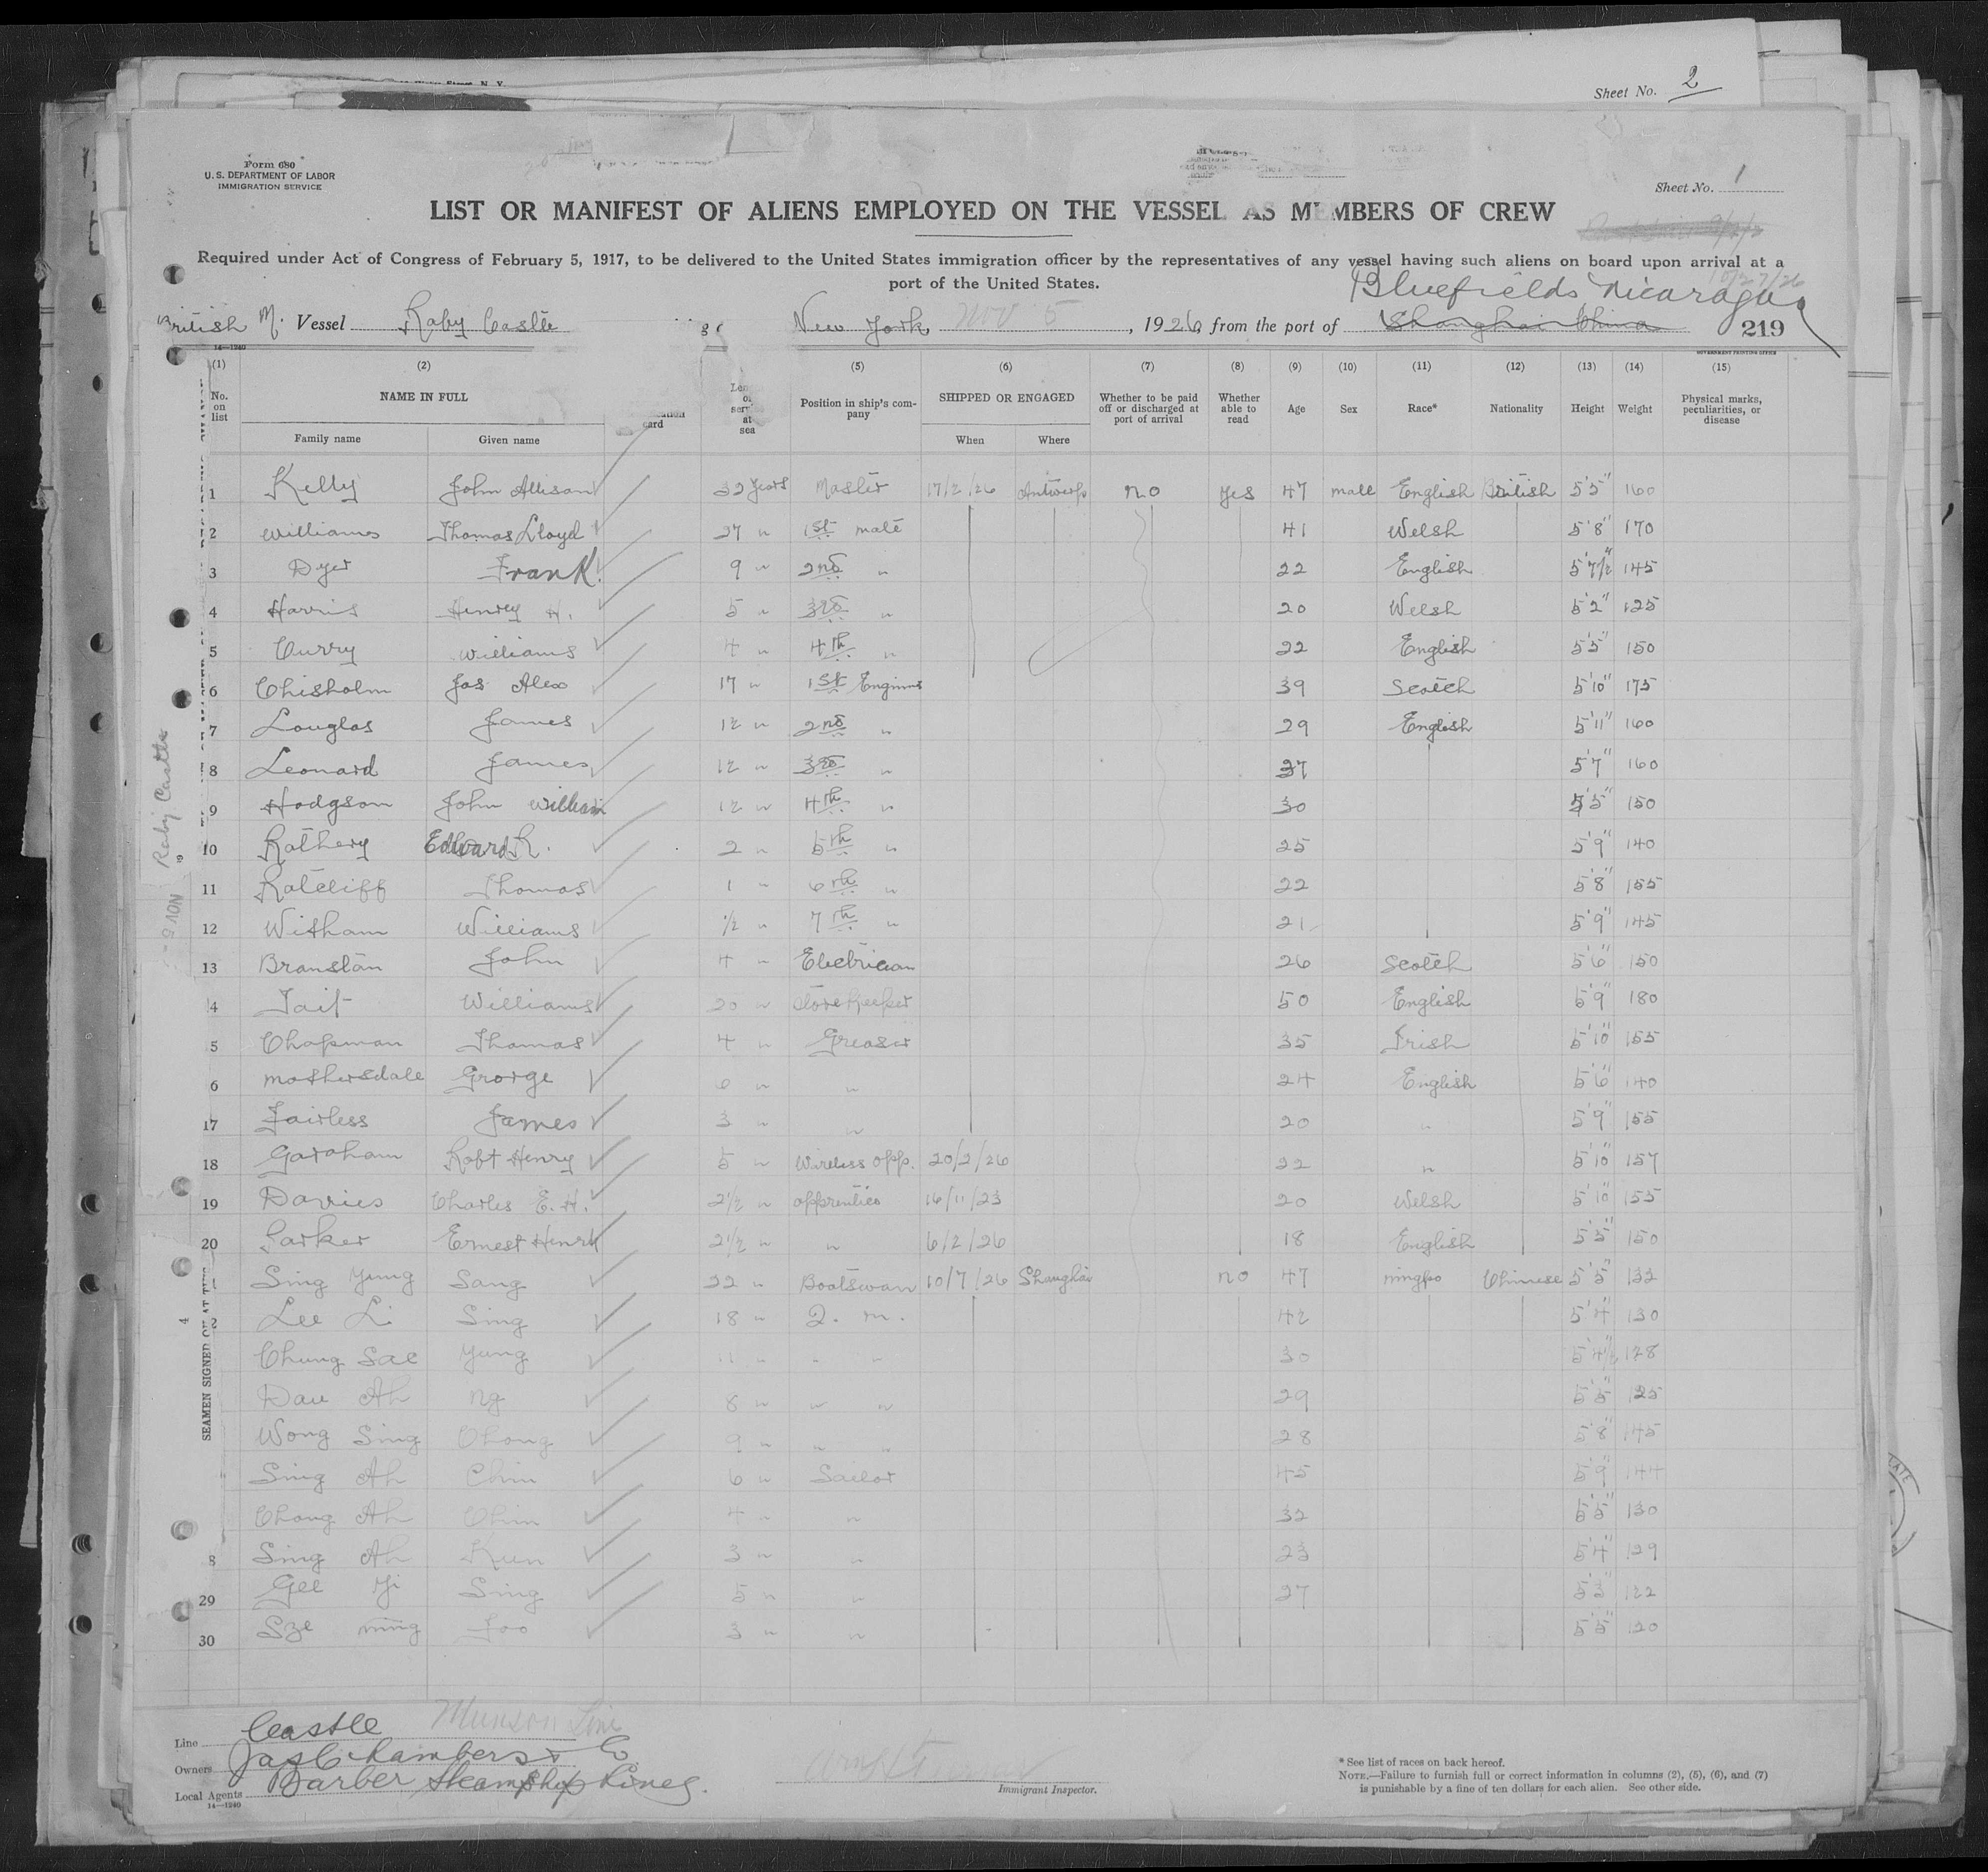 Sheet No. 2
Form 680
U. S. DEPARTMENT OF LABOR
IMMIGRATION SERVICE
Sheet No. 1
LIST OR MANIFEST OF ALIENS EMPLOYED ON THE VESSEL AS MEMBERS OF CREW
Required under Act of Congress of February 5, 1917, to be delivered to the United States immigration officer by the representatives of any vessel having such aliens on board upon arrival at a
port of the United States.
10/27/26
Bluefields Nicaragua
British M. Vessel Raby Castle New York, Nov 5, 1926, from the port of Shanghai China 219
14—1240
GOVERNMENT PRINTING OFFICE
(1) (2) (5) (6) (7) (8) (9) (10) (11) (12) (13) (14) (15)
No. on list NAME IN FULL Position in ship's company SHIPPED OR ENGAGED Whether to be paid off or discharged at port of arrival Whether able to read Age Sex Race* Nationality Height Weight Physical marks, peculiarities, or disease
Family name Given name card sea When Where
1 Kelly John Allison 32 years Master 17/2/26 Antwerp no yes 47 male English British 5'5" 160
2 Williams Thomas Lloyd 27 " 1st mate 41 Welsh 5'8" 170
3 Dyer Frank 9 " 2nd " 22 English 5'7½" 145
4 Harris Henry H. 5 " 3rd " 20 Welsh 5'2" 125
5 Curry Williams 4 " 4th " 22 English 5'5" 150
6 Chisholm Jas Alex 17 " 1st Engineer 39 Scotch 5'10" 175
7 Louglas James 12 " 2nd " 29 English 5'11" 160
8 Leonard James 12 " 3rd " 37 5'7" 160
9 Hodgson John William 12 " 4th " 30 5'5" 150
10 Rathery Edward R. 2 " 5th " 25 5'9" 140
11 Ratcliff Thomas 1 " 6th " 22 5'8" 155
12 Witham Williams ½ " 7th " 21 5'9" 145
13 Branstan John 4 " Electrician 26 Scotch 5'6" 150
4 Tait Williams 20 " Store Keeper 50 English 5'9" 180
5 Chapman Thomas 4 " Greaser 35 Irish 5'10" 155
6 Mothersdale George 6 " " 24 English 5'6" 140
17 Fairless James 3 " " 20 " 5'9" 155
18 Garaham Robt Henry 5 " Wireless opp. 20/2/26 22 " 5'10" 157
19 Davies Charles E. H. 2½ " apprentice 16/11/23 20 Welsh 5'10" 155
20 Parker Ernest Henry 2½ " " 6/2/26 18 English 5'5" 150
1 Sing Yung Sang 22 " Boatswan 10/7/26 Shanghai no 47 ningpo Chinese 5'5" 132
2 Lee Li Sing 18 " Q. M. 42 5'4" 130
Chung Sae Yung 11 " " " 30 5'4½ 128
Dau Ah Ng 8 " " " 29 5'5" 125
Wong Sing Chong 9 " " " 28 5'8" 145
Sing Ah Chin 6 " Sailor 45 5'9" 144
Chong Ah Chin 4 " " 32 5'5" 130
8 Sing Ah Kun 3 " " 23 5'4" 129
29 Gee Yi Sing 5 " " 27 5'3" 122
30 Sze ming Foo 3 " " 5'5" 120
Raby Castle
NOV 8
SEAMEN SIGNED
Line Castle Munson Line
Owners Jas Chambers & Co
Local Agents Barber Steamship Lines.
14—1240
Immigrant Inspector.
* See list of races on back hereof.
NOTE.—Failure to furnish full or correct information in columns (2), (5), (6), and (7)
is punishable by a fine of ten dollars for each alien. See other side.